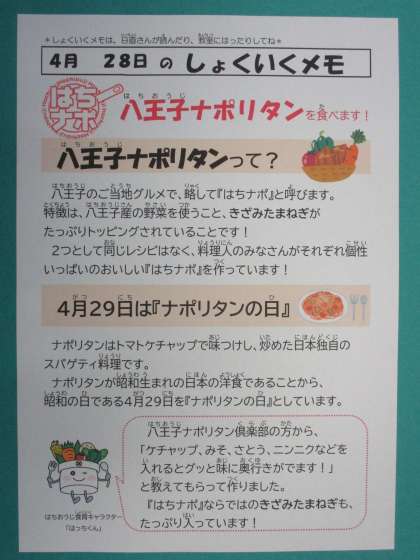 ＊しょくいくメモは、日直さんが読んだり、教室にはったりしてね＊
4月　28日 の しょくいくメモ
はち
ナポ
八王子ナポリタンを食べます！
八王子ナポリタンって？
八王子のご当地グルメで、略して『はちナポ』と呼びます。
特徴は、八王子産の野菜を使うこと、きざみたまねぎが
たっぷりトッピングされていることです！
2つとして同じレシピはなく、料理人のみなさんがそれぞれ個性
いっぱいのおいしい『はちナポ』を作っています！
4月29日は『ナポリタンの日』
ナポリタンはトマトケチャップで味つけし、炒めた日本独自の
スパゲティ料理です。
ナポリタンが昭和生まれの日本の洋食であることから、
昭和の日である4月29日を『ナポリタンの日』としています。
八王子ナポリタン倶楽部の方から、
「ケチャップ、みそ、さとう、ニンニクなどを
入れるとグッと味に奥行きがでます！」
と教えてもらって作りました。
『はちナポ』ならではのきざみたまねぎも、
たっぷり入っています！
はちおうじ食育キャラクター
「はっちくん」